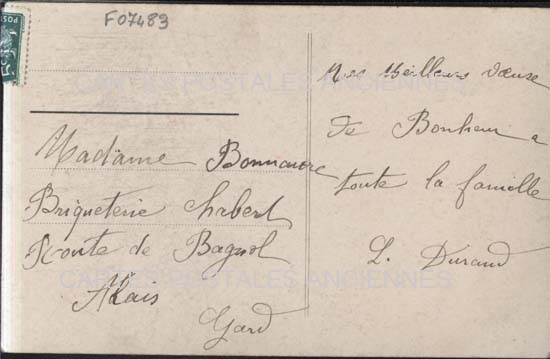 F07483
POST
5c
Mes Meilleurs Vœuse
De Bonheur a
toute la famille
L. Durand
Madame Bonnaure
Briqueterie Chabert
Route de Bagnol
Alais
Gard
CARTES POSTALES ANCIENNES
CARTES POSTALES ANCIENNES